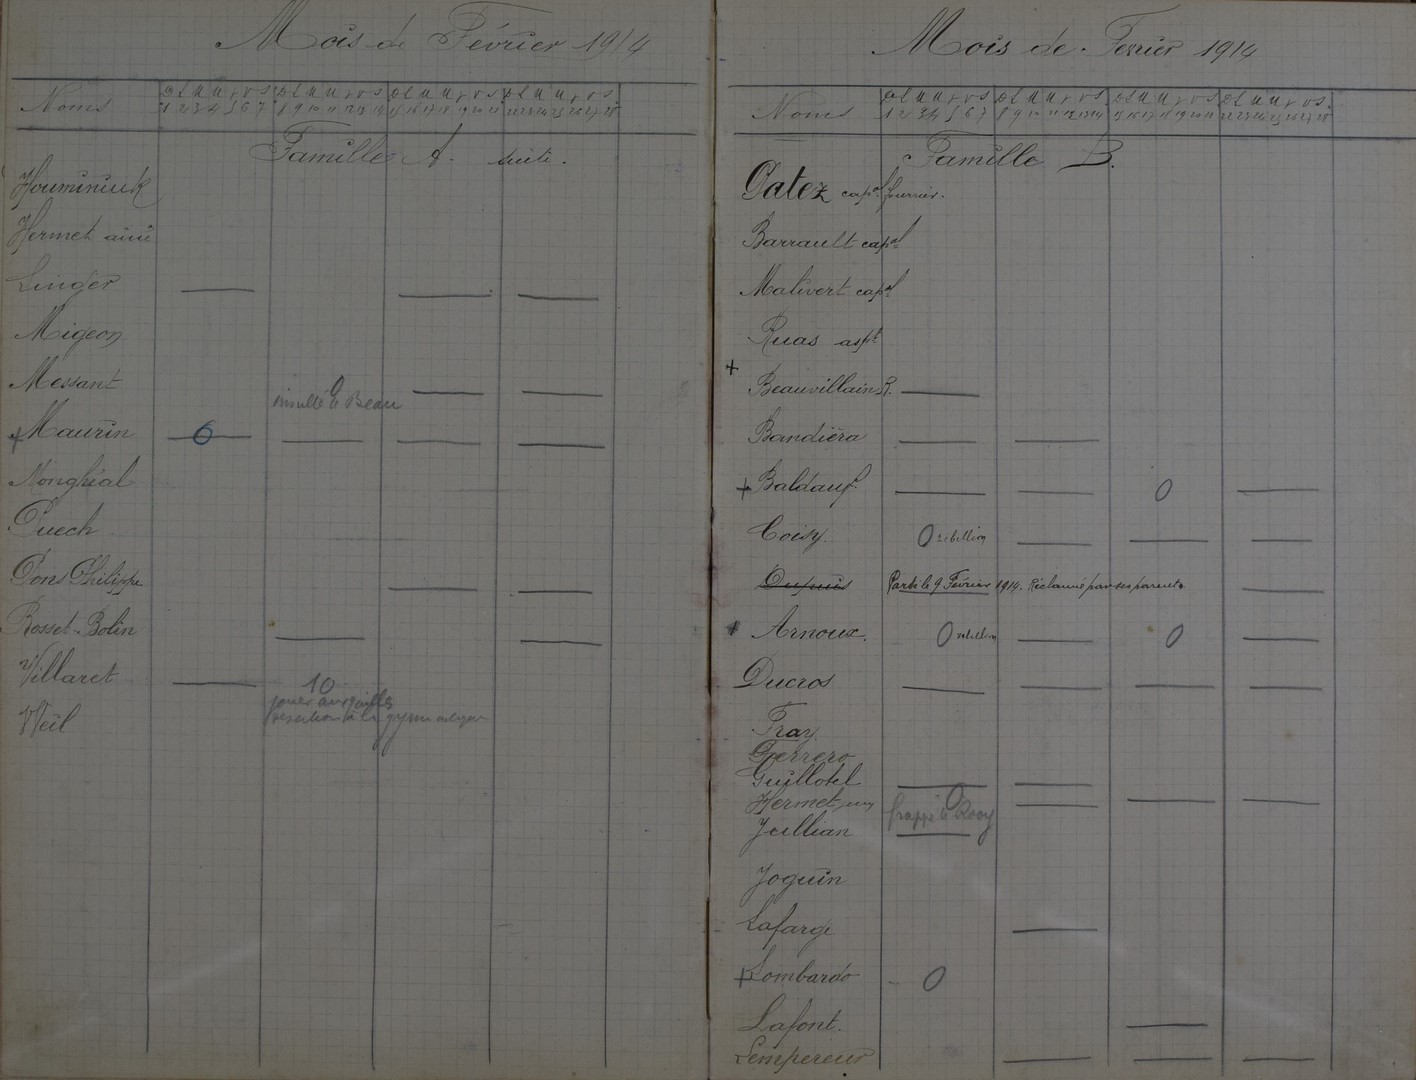 Mois de Février 1914
Noms D L M M J V S D L M M J V S D L M M J V S D L M M J V S
1 2 3 4 5 6 7 8 9 10 11 12 13 14 15 16 17 18 19 20 21 22 23 24 25 26 27 28
Famille A. suite.
Houminiuk
Hermet aîné
Linger
Migeon
Messant 0
insulté le Beau
+ Maurin 6
Monghéal
Puech
Pons Philippe
Rosset-Bolin
Villaret 10
jouer aux
Weil à la gymnastique
Mois de Février 1914
Noms D L M M J V S D L M M J V S D L M M J V S D L M M J V S
1 2 3 4 5 6 7 8 9 10 11 12 13 14 15 16 17 18 19 20 21 22 23 24 25 26 27 28
Famille B.
Patez cap^al fourrier.
Barrault cap^al
Malivert cap^al
Ruas asp^t
+
Beauvillain R.
Bandiéra
+ Baldauf. 0
Coisy. 0 rebellion
Dupuis Parti le 9 Février 1914. Réclamé par ses parents
+ Arnoux. 0 rebellion 0
Ducros
Fray.
Gerrero
Guillotel
Hermet jeune 0
frappé le Rooy
Jullian
Joguin
Lafarge
+ Lombardo 0
Lafont.
Lempereur